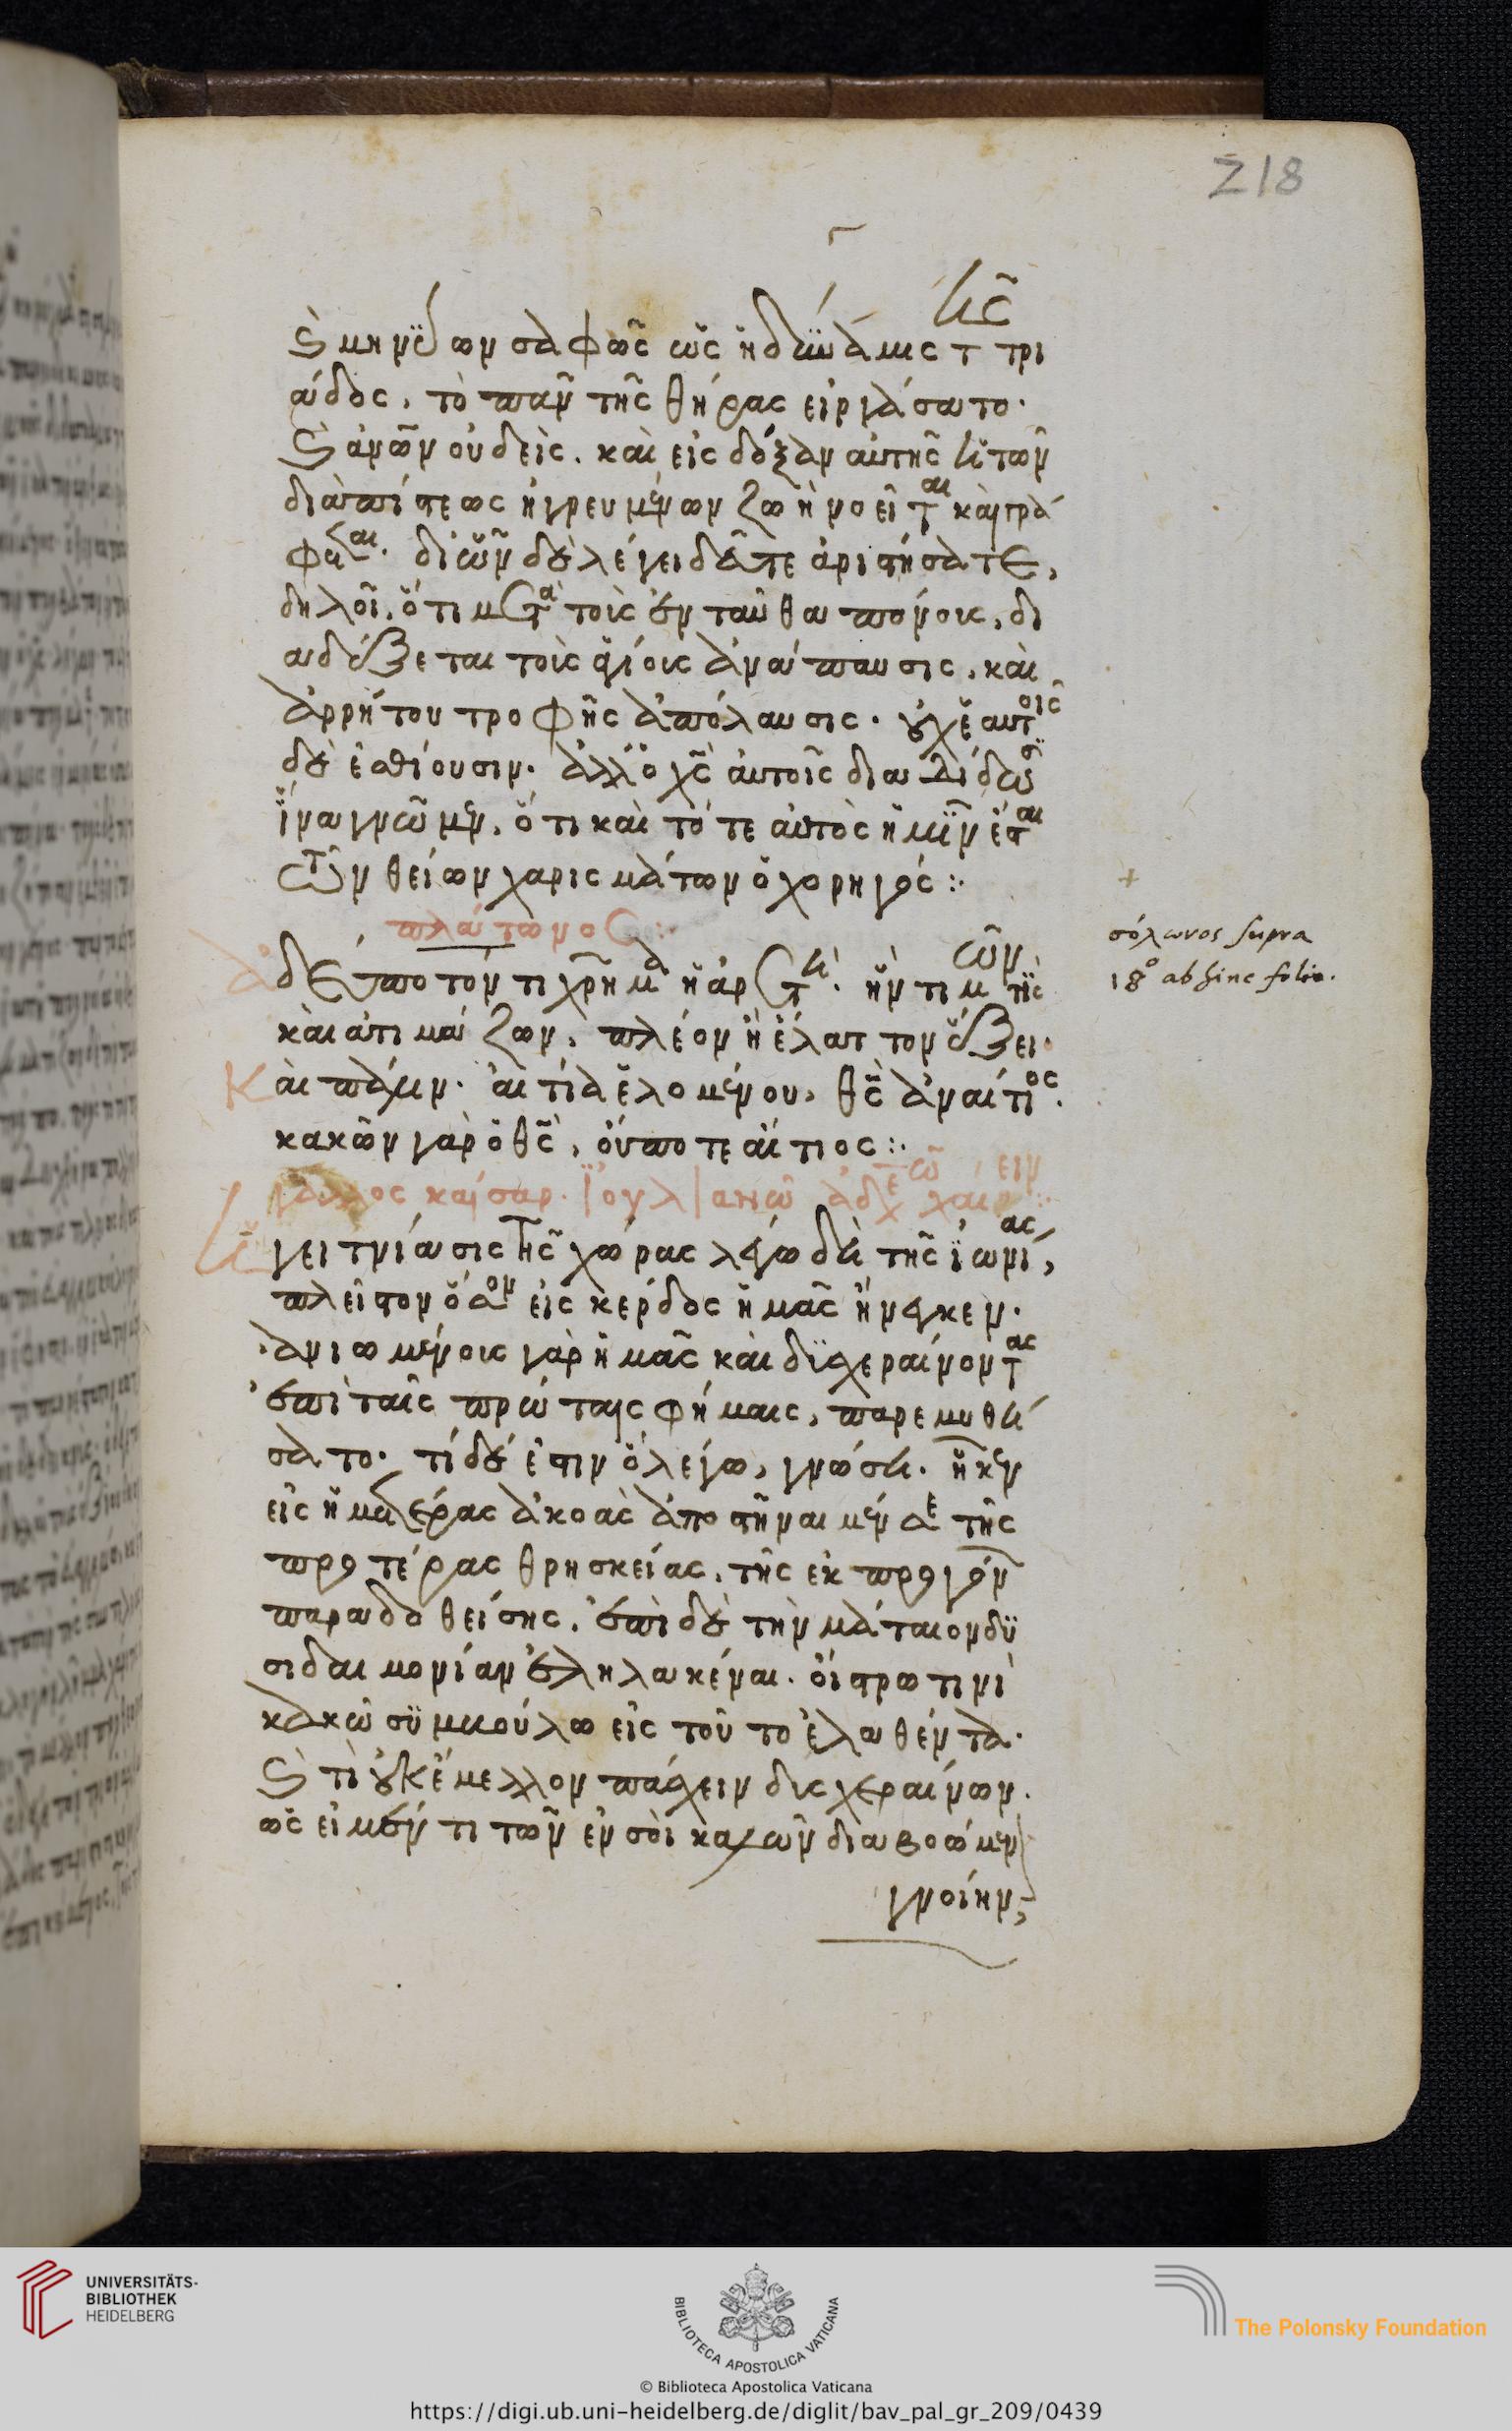 218
ις
καὶ μηνύων σαφῶς ὡς ἡ δύναμις τ τρι
άδος, τὸ πᾶν τῆς θήρας εἰργάσατο·
καὶ ἀνῶν οὐδείς. καὶ εἰς δόξαν αὐτῆς ἡ τῶν
διὰ πίστεως ἠγρευμένων ζωὴ νοεῖται καὶ γρά
φεται. δι' ὧν δὲ λέγει δεῦτε ἀριστήσατε,
δηλοῖ, ὅτι μετὰ τοὺς ἐνταῦθα πόνους, δι
αδέξεται τοὺς ἁγίους ἀνάπαυσις, καὶ
ἀρρήτου τροφῆς ἀπόλαυσις. οὐχ ἑαυτοῖς
δὲ ἐσθίουσιν. ἀλλ' ὁ χς αὐτοῖς διαδίδωσι
ἵνα γνῶμεν, ὅτι καὶ τότε αὐτὸς ἡμῖν ἔσται
τῶν θείων χαρισμάτων ὁ χορηγός :·
πλάτωνος :·
ἀδέσποτόν τι χρῆμα ἡ ἀρετή. ἣν τιμῶν τίς
καὶ ἀτιμάζων, πλέον ἢ ἔλαττον ἕξει·
Καὶ πάλιν. αἰτία ἑλομένου, θς ἀναίτιος.
κακῶν γὰρ ὁ θς, οὔποτε αἴτιος :·
γάλλος καίσαρ. ϊουλιανῶ ἀδελφῶ χαίρειν :·
ἡ γειτνίασις τῆς χώρας λέγω δὴ τῆς ϊωνίας,
πλεῖστον ὅσον εἰς κέρδος ἡμᾶς ἤνεγκεν.
ἀνιωμένους γὰρ ἡμᾶς καὶ δυσχεραίνοντας
ἐπὶ ταῖς πρώταις φήμαις, παρεμυθή
σατο. τί δέ ἐστιν ὃ λέγω, γνώση. ἧκεν
εἰς ἡμετέρας ἀκοὰς ἀποστῆναι μέν σε τῆς
προτέρας θρησκείας, τῆς ἐκ προγόνων
παραδοθείσης. ἐπὶ δὲ τὴν μάταιον δει
σιδαιμονίαν ἐληλακέναι. οἴστρω τινὶ
κακῶ συμβούλω εἰς τοῦτο ἐλαθέντα.
καὶ τί οὐκ ἔμελλον πάσχειν δυσχεραίνων.
ὡς εἰ μέν τι τῶν ἐν σοὶ καλῶν διαβοώμενον
γνοίην,
σόλωνος supra
18° ab hinc folio.
UNIVERSITÄTS-
BIBLIOTHEK
HEIDELBERG
BIBLIOTECA APOSTOLICA VATICANA
© Biblioteca Apostolica Vaticana
The Polonsky Foundation
https://digi.ub.uni-heidelberg.de/diglit/bav_pal_gr_209/0439